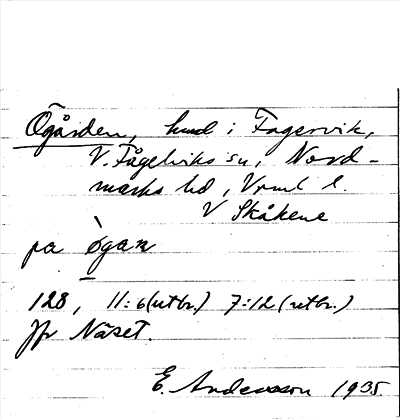 Ögården, hmd i Fagervik,
V. Fågelviks sn, Nord-
marks hd, Vrml l.
V Skåkene
på ògan
128, 11:6 (utbr.) 7:12 (utbr.)
Jfr Näset.
E. Andersson 1935.